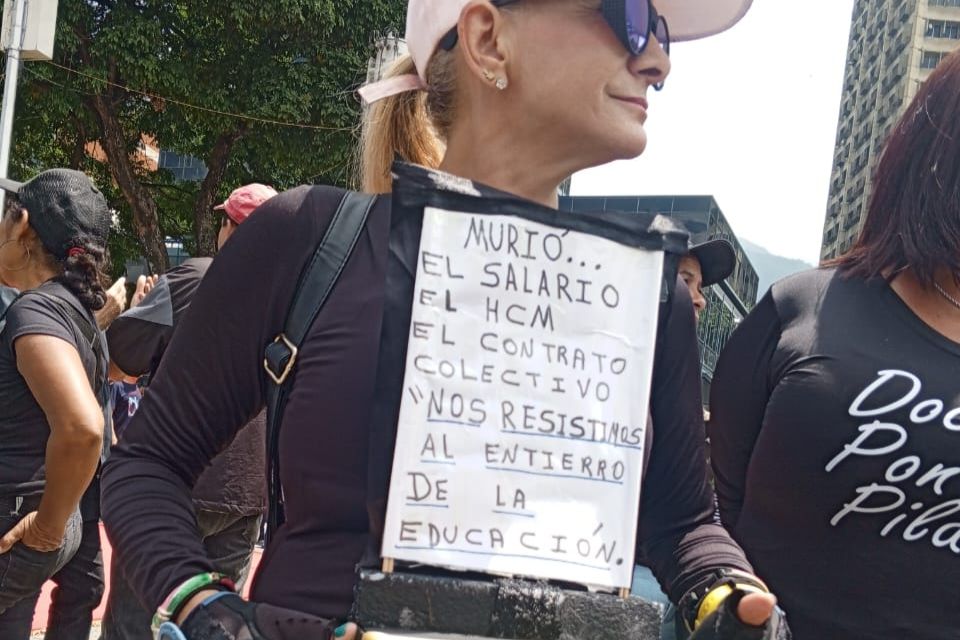 MURIÓ...
EL SALARIO
EL HCM
EL CONTRATO
COLECTIVO
"NOS RESISTIMOS
AL ENTIERRO
DE LA
EDUCACIÓN.